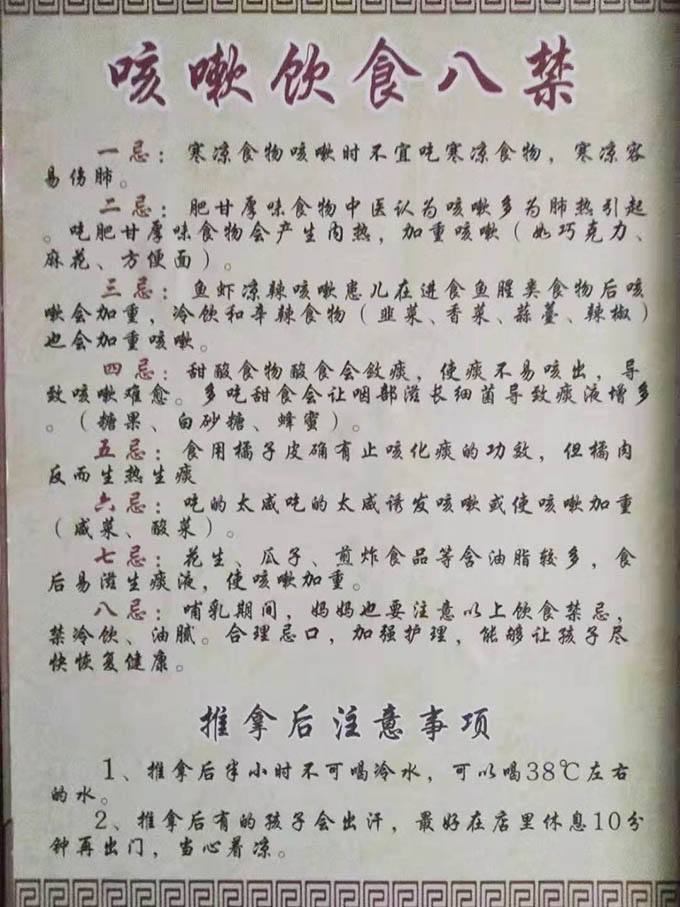 咳嗽饮食八禁
一忌：寒凉食物咳嗽时不宜吃寒凉食物，寒凉容
易伤肺。
二忌：肥甘厚味食物中医认为咳嗽多为肺热引起
。吃肥甘厚味食物会产生内热，加重咳嗽（如巧克力、
麻花、方便面）。
三忌：鱼虾凉辣咳嗽患儿在进食鱼腥类食物后咳
嗽会加重，冷饮和辛辣食物（韭菜、香菜、蒜薹、辣椒）
也会加重咳嗽。
四忌：甜酸食物酸食会敛痰，使痰不易咳出，导
致咳嗽难愈。多吃甜食会让咽部滋长细菌导致痰液增多
。（糖果、白砂糖、蜂蜜）。
五忌：食用橘子皮确有止咳化痰的功效，但橘肉
反而生热生痰
六忌：吃的太咸吃的太咸诱发咳嗽或使咳嗽加重
（咸菜、酸菜）。
七忌：花生、瓜子、煎炸食品等含油脂较多，食
后易滋生痰液，使咳嗽加重。
八忌：哺乳期间，妈妈也要注意以上饮食禁忌，
禁冷饮、油腻。合理忌口，加强护理，能够让孩子尽
快恢复健康。
推拿后注意事项
1、推拿后半小时不可喝冷水，可以喝38℃左右
的水。
2、推拿后有的孩子会出汗，最好在店里休息10分
钟再出门，当心着凉。